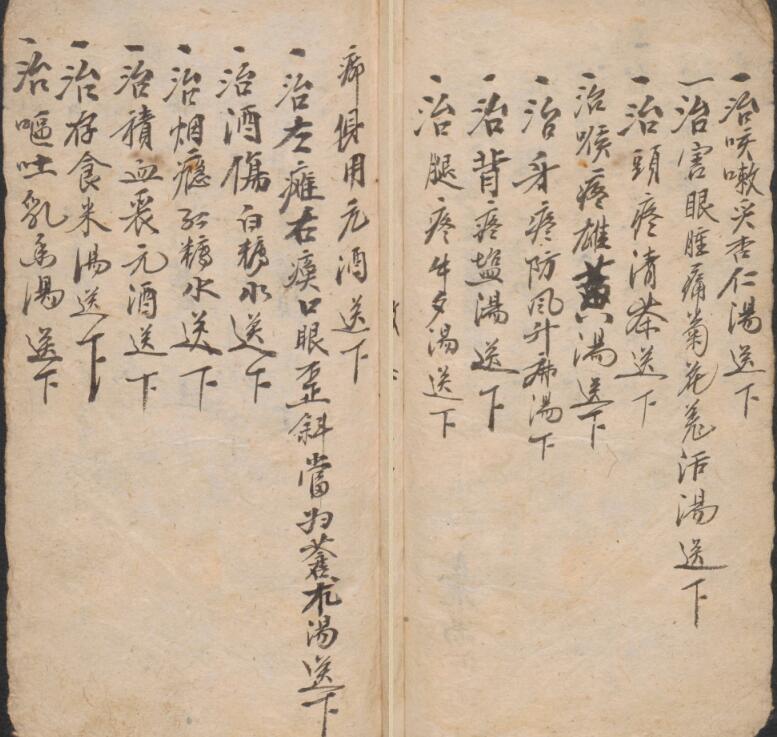 一治咳嗽炙杏仁湯送下
一治害眼腫痛菊花羗活湯送下
一治頭疼清茶送下
一治喉疼雄黄湯送下
一治身疼防風升麻湯下
一治背疼塩湯送下
一治腿疼牛夕湯送下
痹俱用元酒送下
一治左癱右瘓口眼歪斜當归蒼朮湯送下
一治酒傷白糖水送下
一治烟癮红糖水送下
一治積血衰元酒送下
一治存食米湯送下
一治嘔吐乳香湯送下